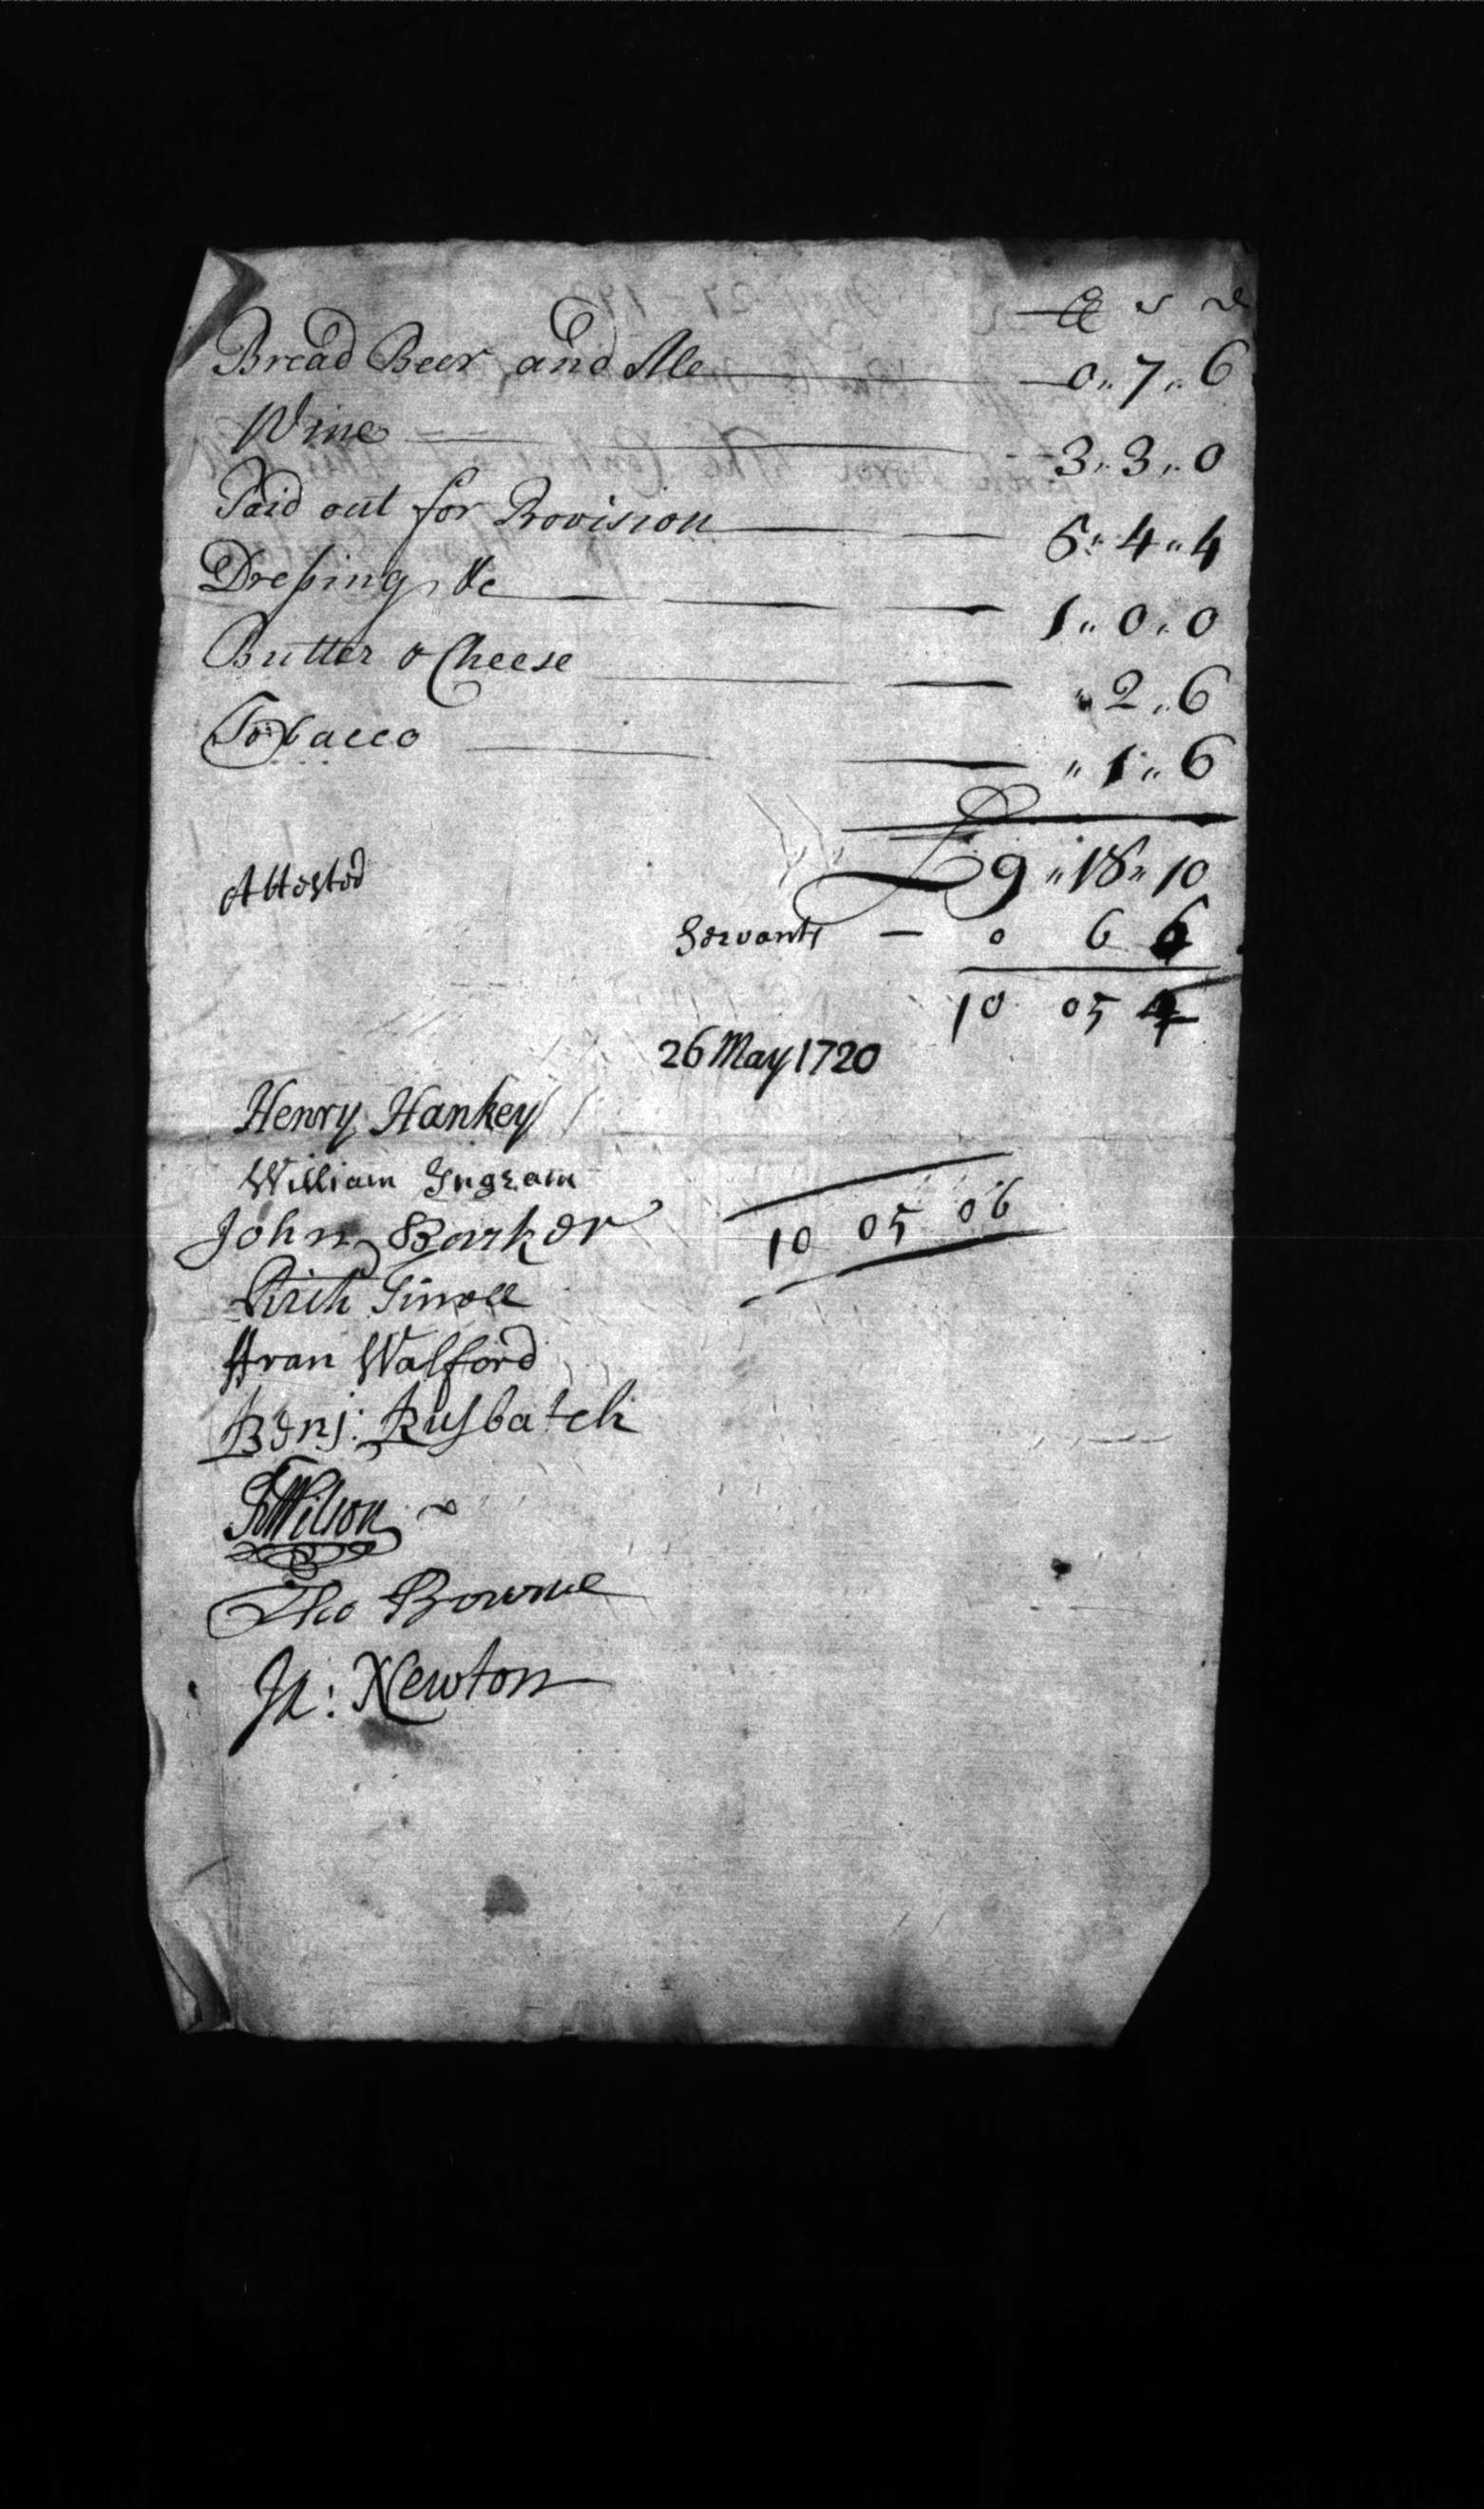 £ s d
Bread Beer and Ale 0,, 7,, 6
Wine 3,, 3,, 0
Paid out for Provision 5,, 4,, 4
Dressing &c 1,, 0,, 0
Butter & Cheese ,, 2,, 6
Tobacco ,, 1,, 6
£ 9,, 18,, 10
Attested
Servants — 0 6 6
10 05 4
26 May 1720
Henry Hankey
William Ingram
John Barker
10 05 06
Walford
Benj: Rusbatch
Wilson
Tho Bowrne
Newton